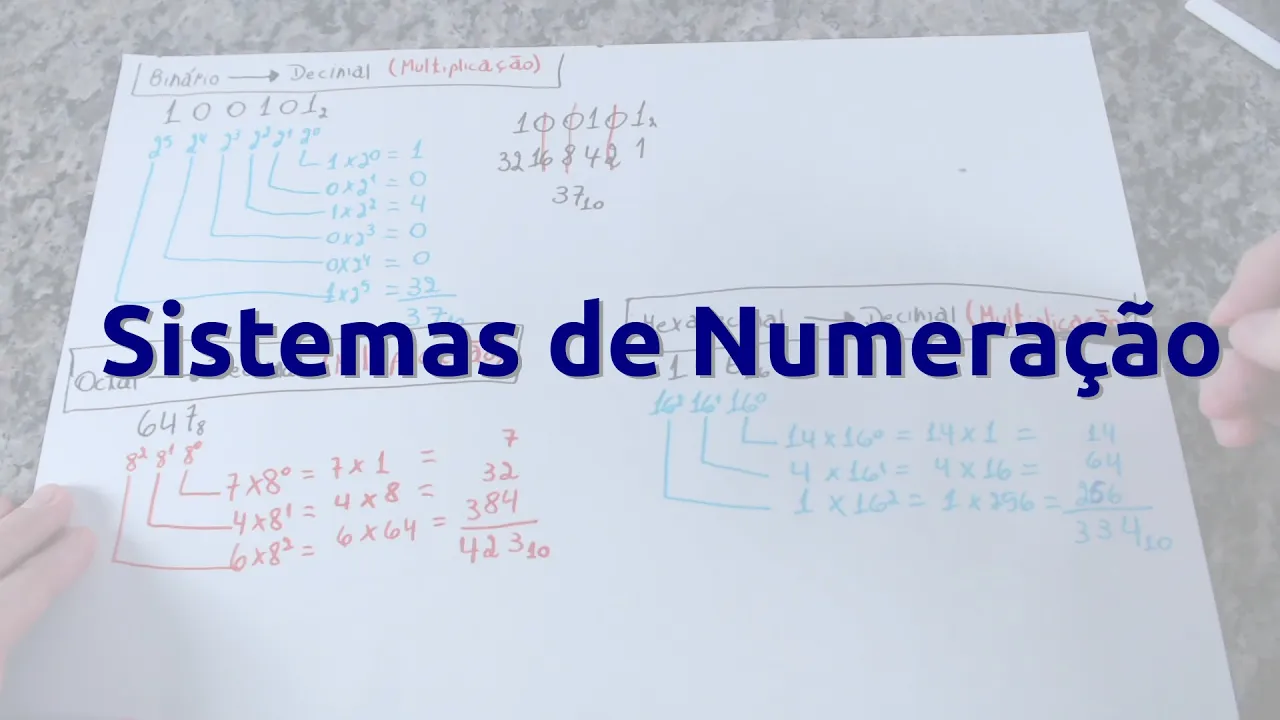 Binário → Decimal (Multiplicação)
1 0 0 1 0 1₂
2⁵ 2⁴ 2³ 2² 2¹ 2⁰
1 x 2⁰ = 1
0 x 2¹ = 0
1 x 2² = 4
0 x 2³ = 0
0 x 2⁴ = 0
1 x 2⁵ = 32
37₁₀
1 0 0 1 0 1₂
32 16 8 4 2 1
37₁₀
Sistemas de Numeração
Octal
647₈
8² 8¹ 8⁰
7 x 8⁰ = 7 x 1 = 7
4 x 8¹ = 4 x 8 = 32
6 x 8² = 6 x 64 = 384
423₁₀
Decimal (Multiplicação)
1
16² 16¹ 16⁰
14 x 16⁰ = 14 x 1 = 14
4 x 16¹ = 4 x 16 = 64
1 x 16² = 1 x 256 = 256
334₁₀